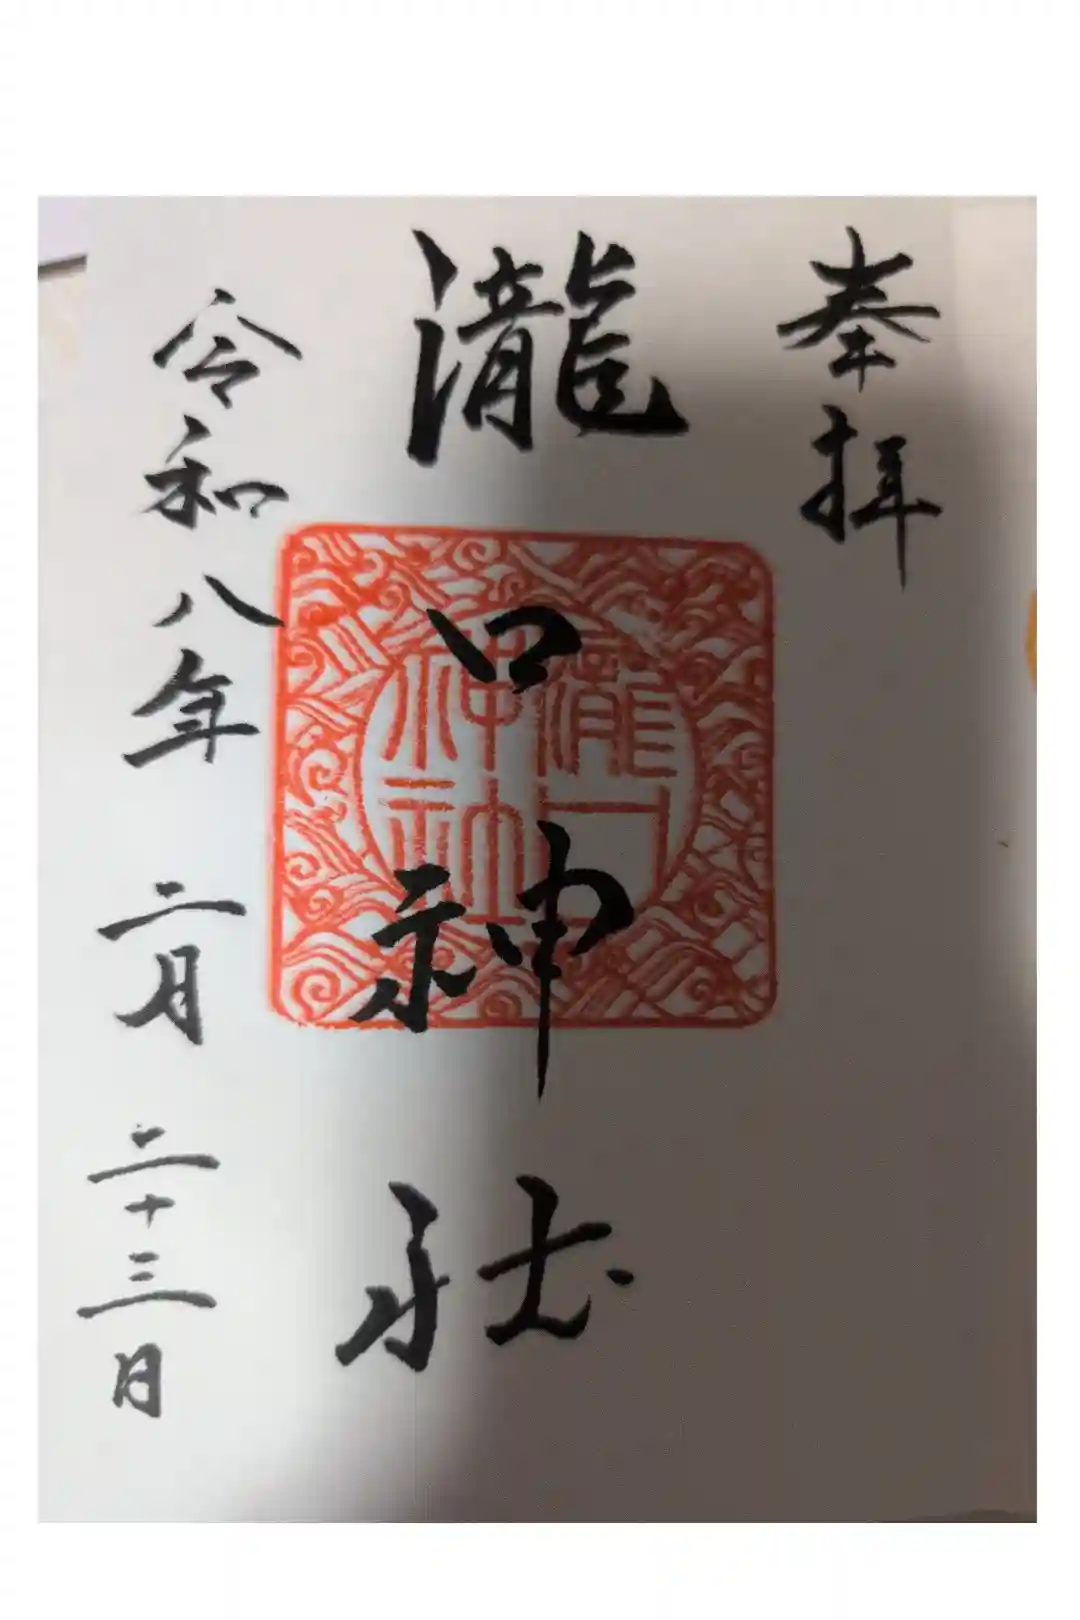 奉拝
瀧口神社
瀧口
神社
令和八年二月二十三日